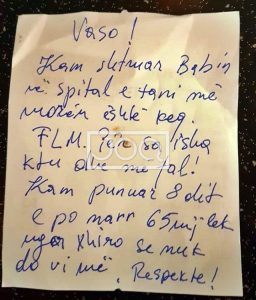 Vaso!
Kam shtruar Babin
në spital e tani më
vjen është keq.
FLM. Për sa isha
ktu dhe me fal!
Kam punuar 8 dit
e po marr 65 mij lek
nga xhiro se nuk
do vi më. Respekte!